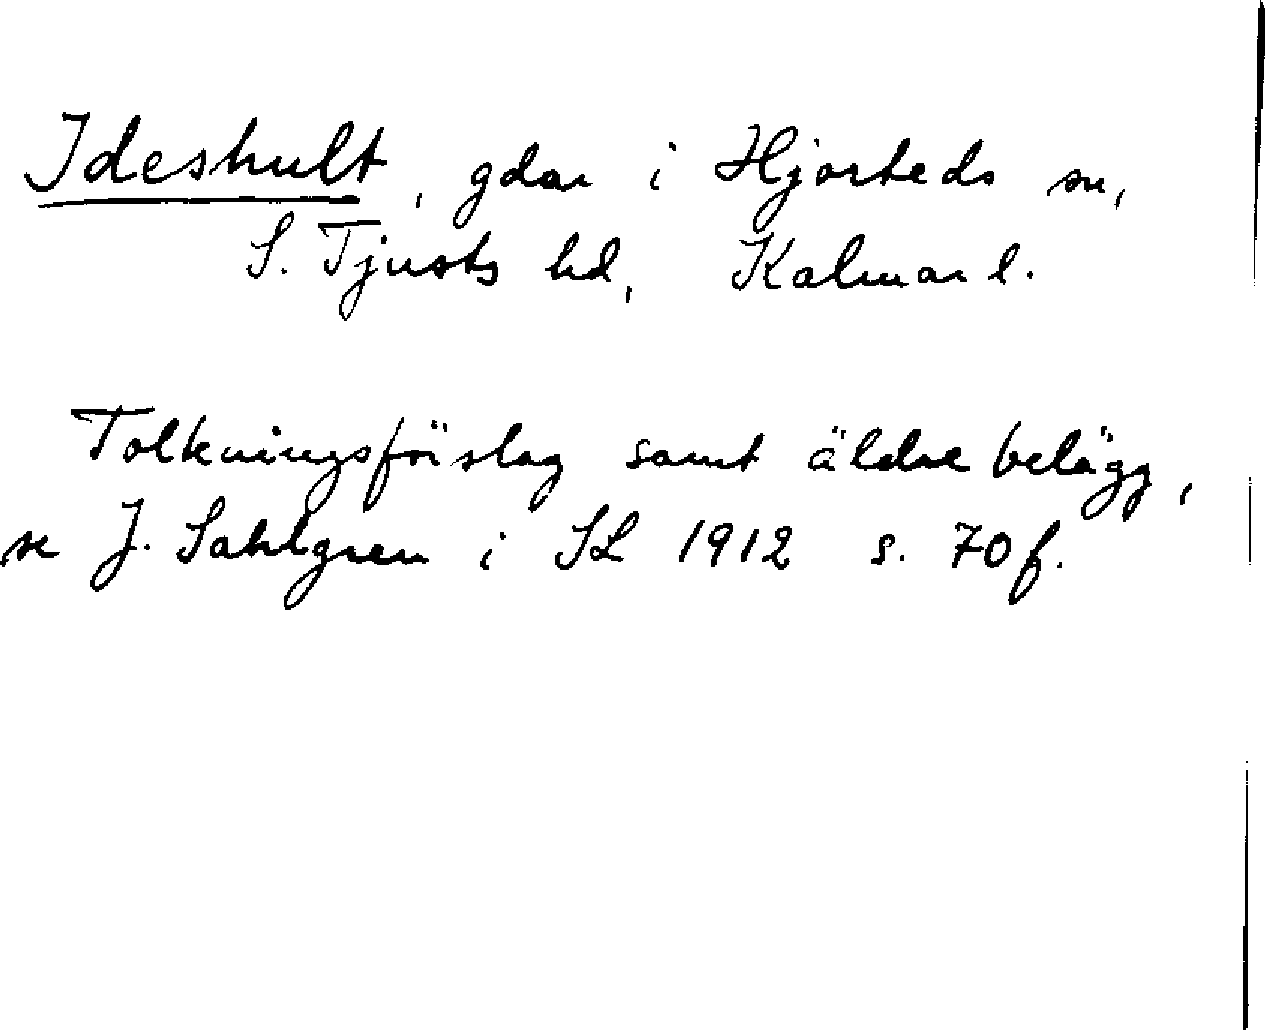 Ideshult, gdar i Hjorteds sn,
S. Tjusts hd, Kalmar l.
Tolkningsförslag samt äldre belägg,
se J. Sahlgren i SL 1912 s. 70f.